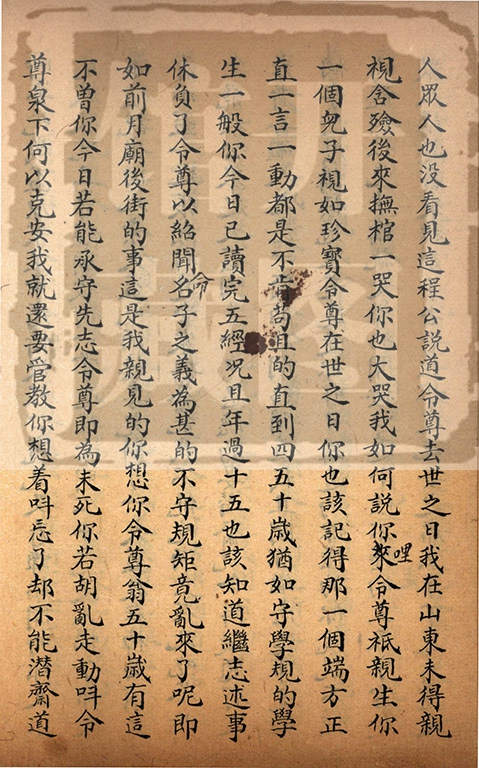 人眾人也没看見這程公説道令尊去世之日我在山東未得親
視含殮後來撫棺一哭你也大哭我如何説你來哩令尊祗親生你
一個兒子視如珍寳令尊在世之日你也該記得那一個端方正
直一言一動都是不肯苟且的直到四五十歳猶如守學規的學
生一般你今日已讀完五經况且年過十五也該知道繼志述事
休負了令尊以紹聞名子之義為甚的不守規矩竟亂來了呢即
命
如前月廟後街的事這是我親見的你想你令尊翁五十歳有這
不曾你今日若能承守先志令尊即為未死你若胡亂走動呌令
尊泉下何以克安我就還要管教你想着呌忘了却不能潛齋道